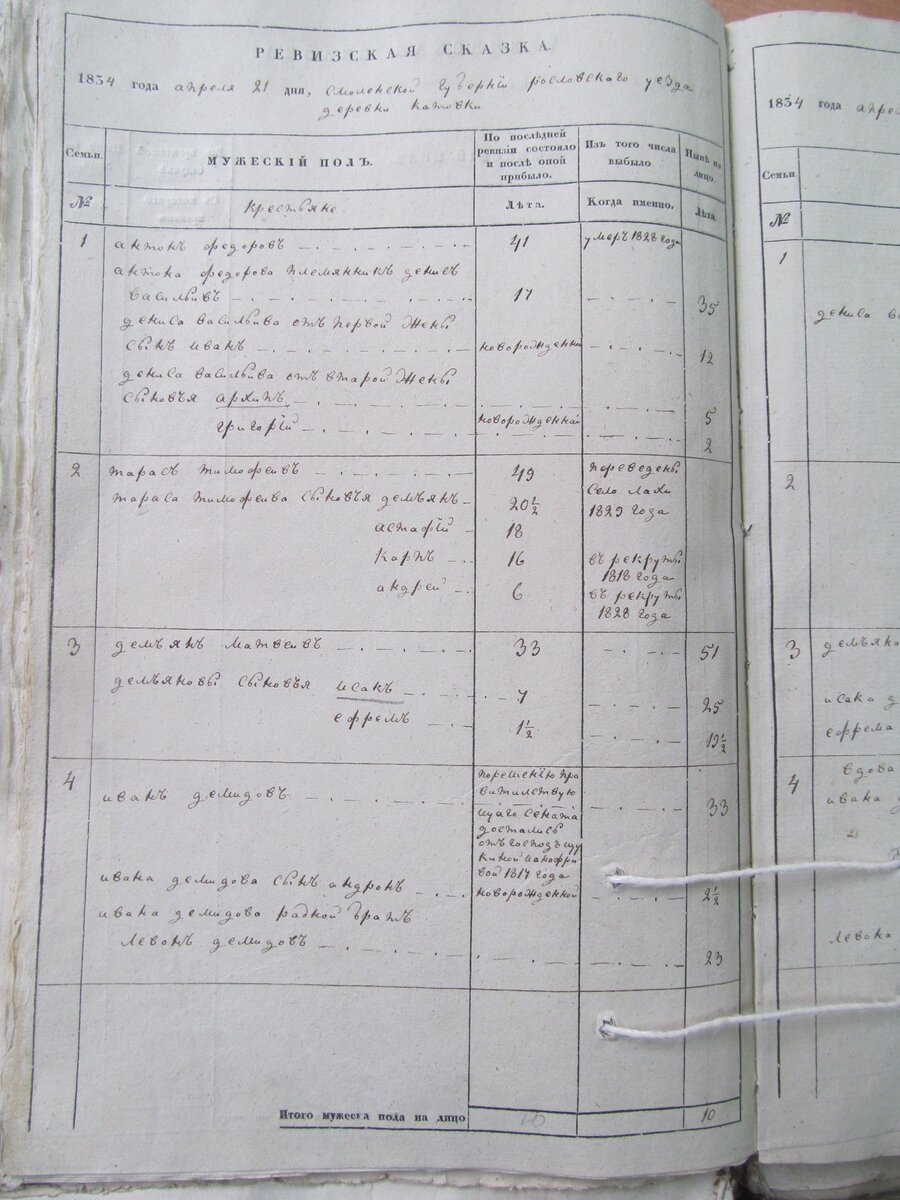 РЕВИЗСКАЯ СКАЗКА.
1834 года апреля 21 дня, смоленской губерніи рословского уезда
деревни катовки
Семьи.
МУЖЕСКІЙ ПОЛЪ.
По послѣдней
ревизіи состояло
и послѣ оной
прибыло.
Изъ того числа
выбыло
Нынѣ на
лицо.
№
крестьяне
Лѣта.
Когда именно.
Лѣта.
1 антонъ федоровъ 41 умеръ 1828 года
антона федорова племянникъ денисъ
васильивъ 17 35
дениса васильива отъ первой жены
сынъ иванъ новорожденной 12
дениса васильива отъ второй жены
сыновья архипъ 5
григорій новорожденной 2
2 тарасъ тимофеивъ 49 переведены
тараса тимофеива сыновья демьянъ 20½ село лахи
1829 года
астафій 18
карпъ 16 въ рекруты
1818 года
андрей 6 въ рекруты
1828 года
3 демьянъ матвеивъ 33 51
демьяновы сыновья исакъ 7 25
ефремъ 1½ 19½
4 иванъ демидовъ порешенію пра
витилствую
щаго сената
достались
отъ господъ
1817 года 33
ивана демидова сынъ андронъ новорожденной 2½
ивана демидова радной братъ
левонъ демидовъ 23
Итого мужеска пола на лицо 10 10
1834 года
Семьи.
№
1
дениса
2
3 демьяно
исака
ефрема
4 вдова
ивана
левона